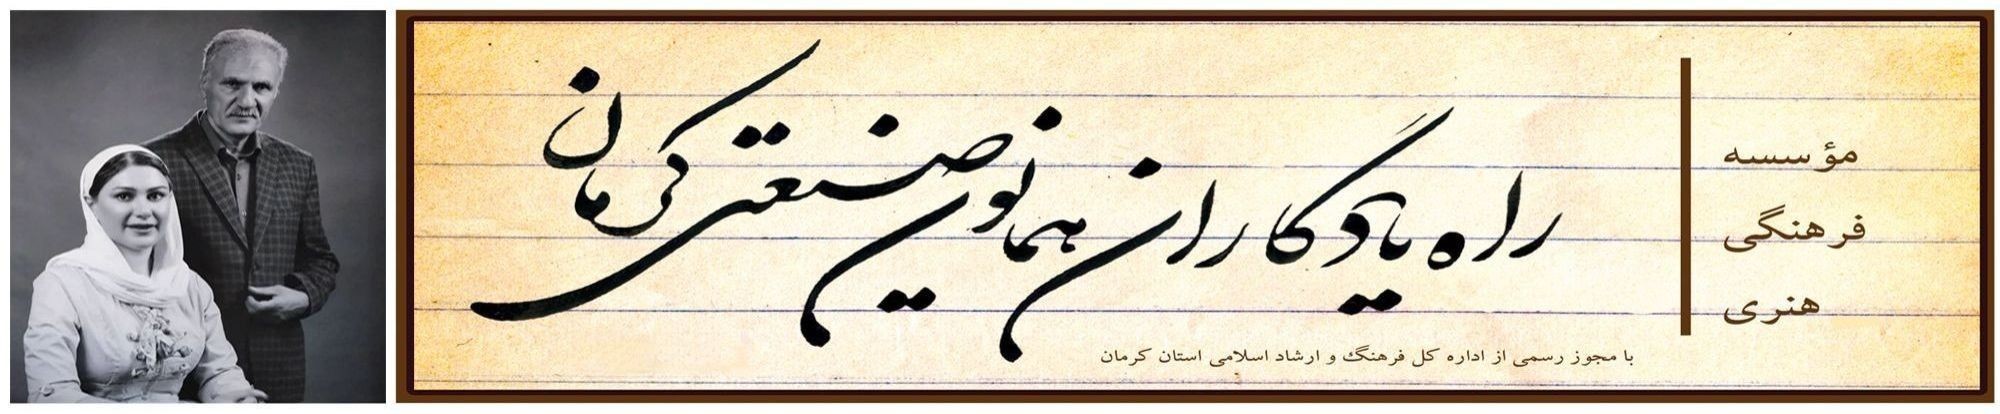 مؤسسه
فرهنگی
هنری
راه یادگاران همایون صنعتی کرمان
با مجوز رسمی از اداره کل فرهنگ و ارشاد اسلامی استان کرمان